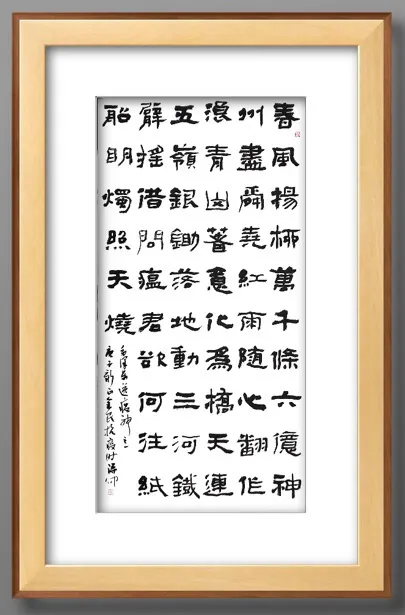 春風揚柳萬千條六億神
州盡舜堯紅雨隨心翻作
浪青山著意化為橋天連
五嶺銀鋤落地動三河鐵
臂搖借問瘟君欲何往紙
船明燭照天燒
毛澤東送瘟神之二
庚子新正全民抗疫時